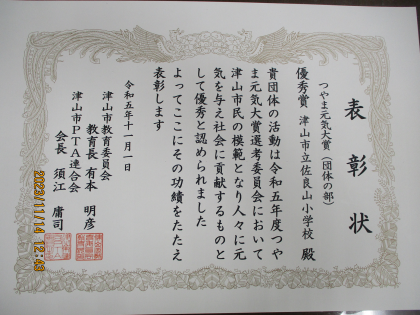 表彰状
つやま元気大賞(団体の部)
優秀賞 津山市立佐良山小学校 殿
貴団体の活動は令和五年度つや
ま元気大賞選考委員会において
津山市民の模範となり人々に元
気を与え社会に貢献するものと
して優秀と認められました
よってここにその功績をたたえ
表彰します
令和五年十一月一日
津山市教育委員会
教育長 有本 明彦
津山市PTA連合会
会長 須江 庸司
2023/11/14 12:43